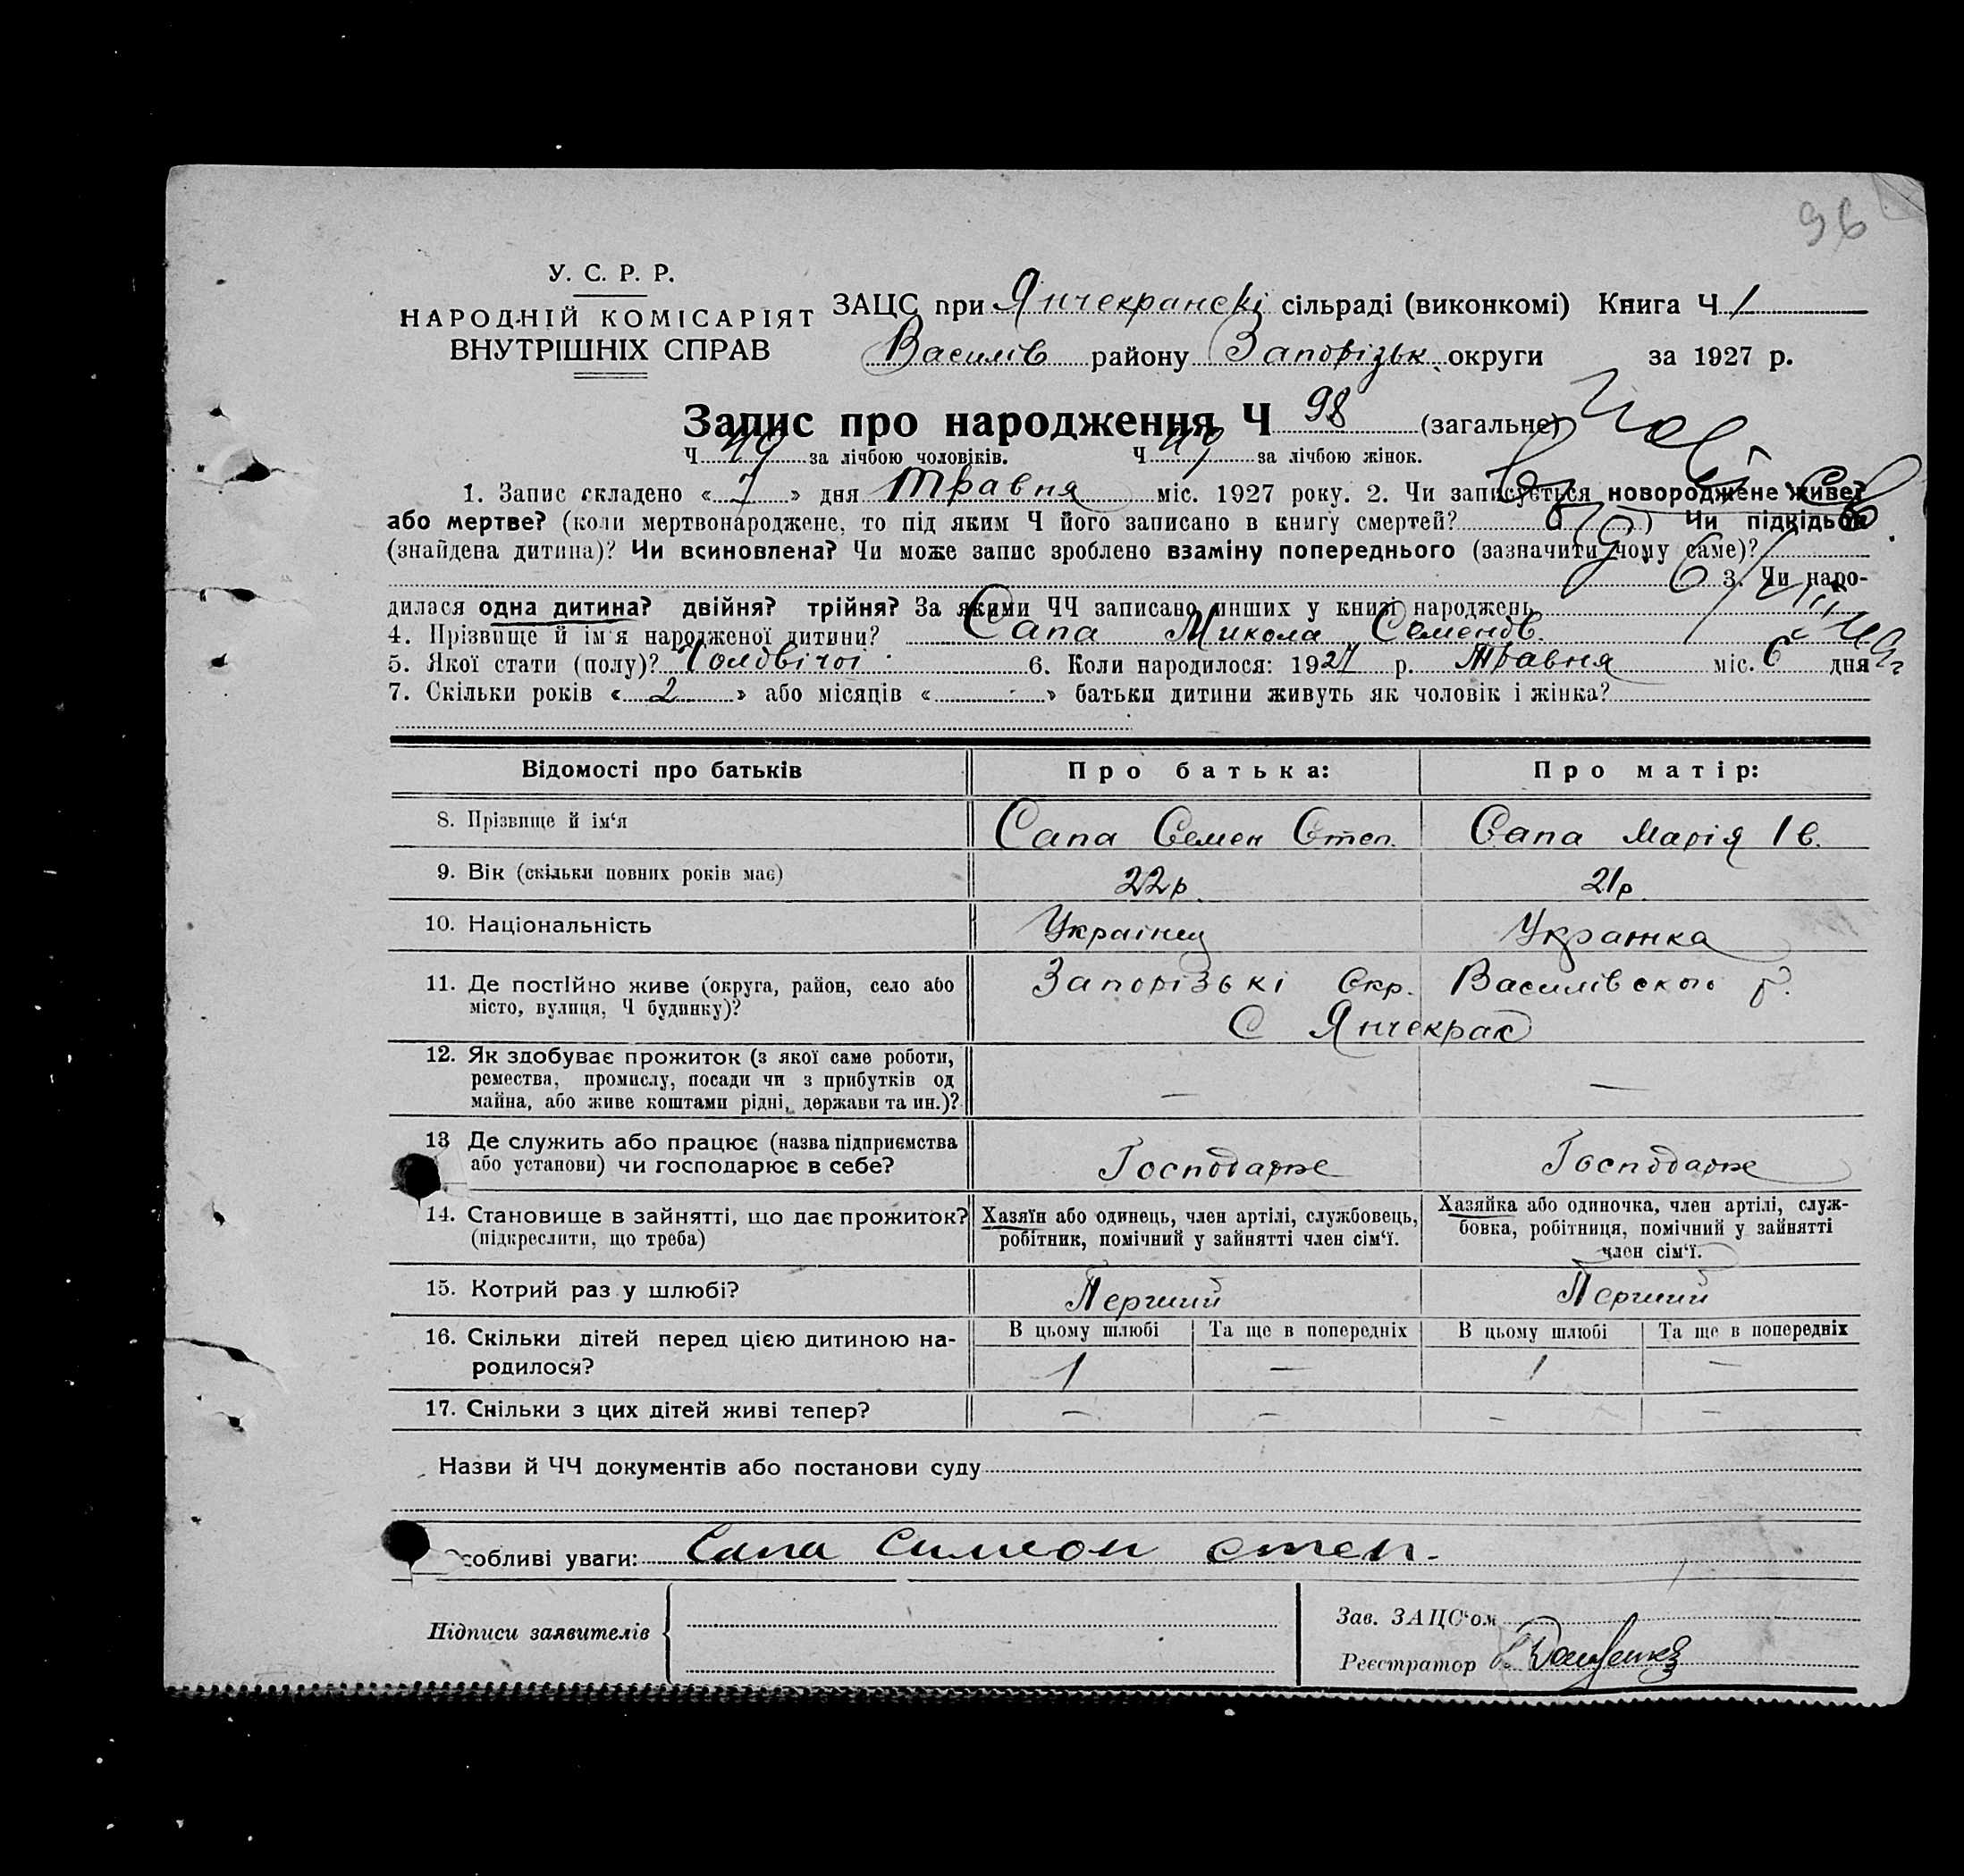 96
У. С. Р. Р.
НАРОДНІЙ КОМІСАРІЯТ
ВНУТРІШНІХ СПРАВ
ЗАЦС при Янчекранскі сільраді (виконкомі) Книга Ч 1
Василів району Запорізьк. округи за 1927 р.
Запис про народження Ч 98 (загальне)
Ч 49 за лічбою чоловіків. Ч 49 за лічбою жінок.
1. Запис складено « 7 » дня Травня міс. 1927 року. 2. Чи записується новороджене живе?
або мертве? (коли мертвонароджене, то під яким Ч його записано в книгу смертей? ) Чи підкідьок
(знайдена дитина)? Чи всиновлена? Чи може запис зроблено взаміну попереднього (зазначити чому саме)?
3. Чи наро-
дилася одна дитина? двійня? трійня? За якими ЧЧ записано инших у книзі народжень
4. Прізвище й ім'я народженої дитини? Сапа Микола Семенов.
5. Якої стати (полу)? Чоловічої 6. Коли народилося: 1927 р. Травня міс. 6 дня
7. Скільки років « 2 » або місяців « - » батьки дитини живуть як чоловік і жінка?
Відомості про батьків Про батька: Про матір:
8. Прізвище й ім'я Сапа Семен Степ. Сапа Марія Ів.
9. Вік (скільки повних років має) 22р. 21р.
10. Національність Українец Украінка
11. Де постійно живе (округа, район, село або Запорізькі Окр. Василівского р.
місто, вулиця, Ч будинку)? С Янчекрак
12. Як здобуває прожиток (з якої саме роботи,
ремества, промислу, посади чи з прибутків од
майна, або живе коштами рідні, держави та ин.)? — —
13 Де служить або працює (назва підприємства
або установи) чи господарює в себе? Господарює Господарює
14. Становище в зайнятті, що дає прожиток? Хазяїн або одинець, член артілі, службовець, Хазяйка або одиночка, член артілі, служ-
(підкреслити, що треба) робітник, помічний у зайнятті член сім'ї. бовка, робітниця, помічний у зайнятті
член сім'ї.
15. Котрий раз у шлюбі? Перший Перший
16. Скільки дітей перед цією дитиною на- В цьому шлюбі Та ще в попередніх В цьому шлюбі Та ще в попередніх
родилося? 1 — 1 —
17. Скільки з цих дітей живі тепер? — — — —
Назви й ЧЧ документів або постанови суду
Особливі уваги: Сапа Симеон степ.
Підписи заявителів
Зав. ЗАЦС'ом
Реєстратор